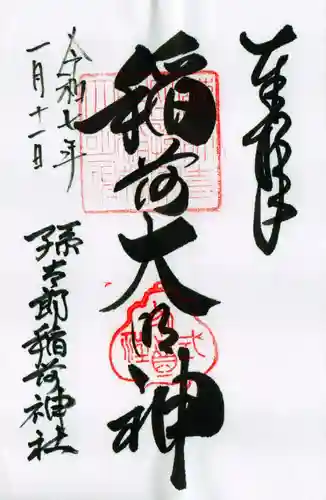 奉拝
稲荷大明神
令和七年
一月十一日
孫太郎稲荷神社